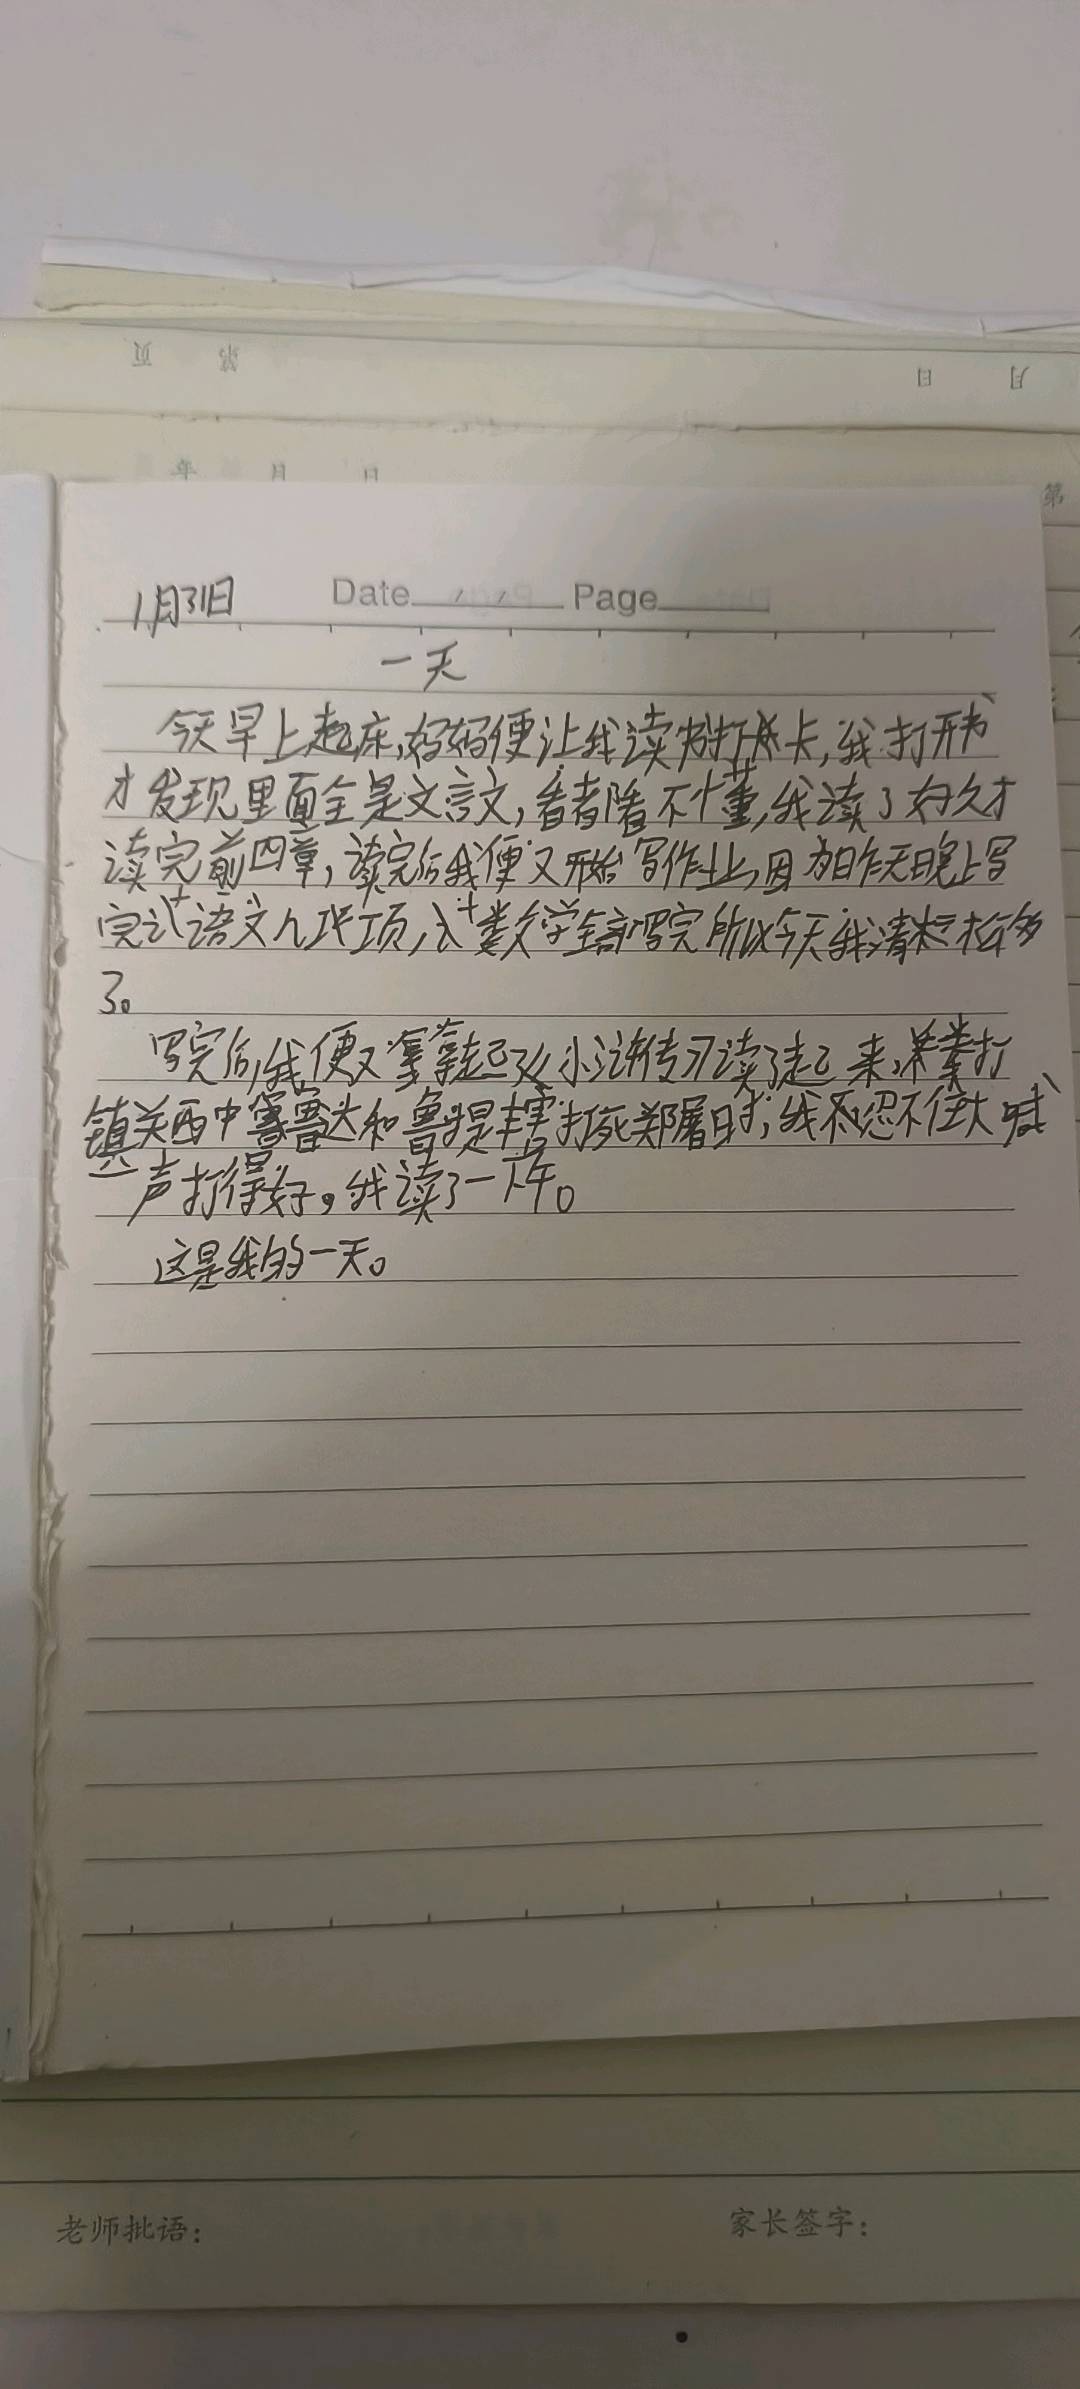 页 第 日 月
年 月 日
第
1月31日 Date Page
一天
今天早上起床,妈妈便让我读书打卡,我打开书
才发现里面全是文言文,看着看不懂,我读了好久才
读完前四章,读完后我便又开始写作业,因为昨天晚上写
完语文八项,数学全部写完所以今天我清松多
了。
写完后,我便又拿起水浒传习读了起来,拳打
镇关西中鲁达和鲁提辖打死郑屠时,我不忍不住大喊
一声打得好。我读了一下午。
这是我的一天。
老师批语: 家长签字: